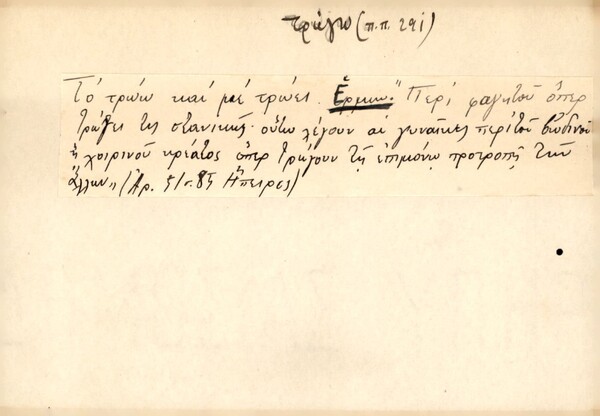 τρώγω (π.π. 291)
Τό τρώω καί μέ τρώει. Ἑρμην." Περί φαγητοῦ ὅπερ
τρώγει τις στανικῶς· οὕτω λέγουν αἱ γυναῖκες περί τοῦ βωδινοῦ
ἢ χοιρινοῦ κρέατος ὅπερ τρώγουν τῇ ἐπιμόνῳ προτροπῇ τῶν
ἄλλων" (Ἀρ. 51 σ. 85 Ἤπειρος)